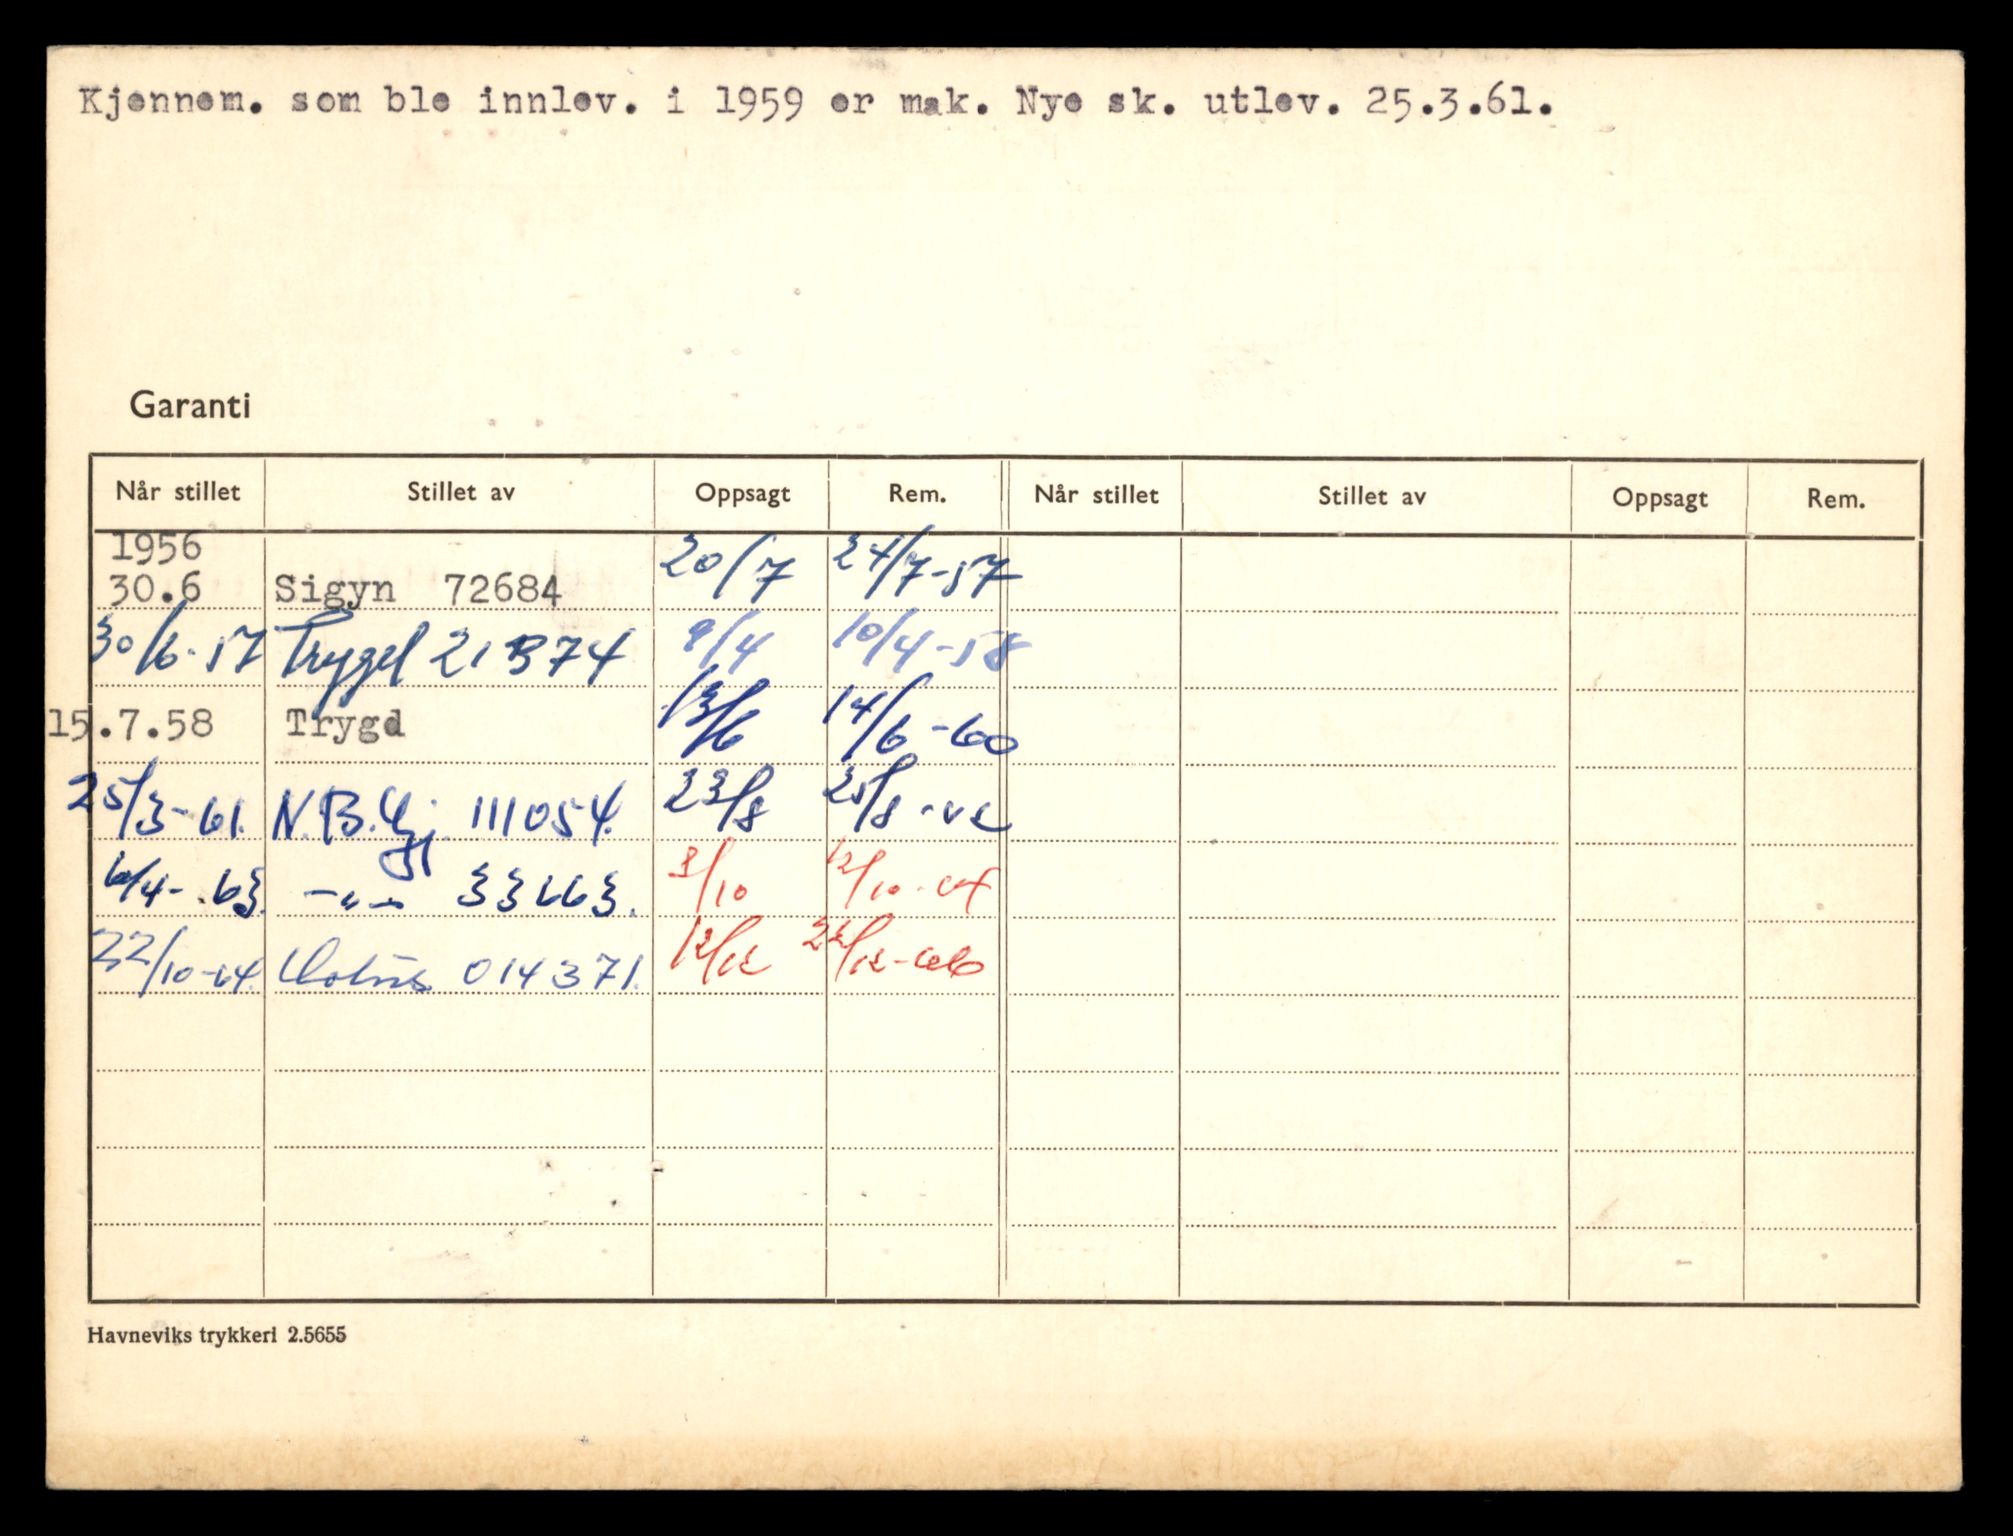 Kjennem. som ble innlev. i 1959 er mak. Nye sk. utlev. 25.3.61.
Garanti
Når stillet Stillet av Oppsagt Rem. Når stillet Stillet av Oppsagt Rem.
1956
30.6 Sigyn 72684 20/7 24/7-57
30/6-57 Trygd 21374 9/4 10/4-58
15.7.58 Trygd 13/6 14/6-60
25/3-61. N.B.Gj. 111054. 23/8 25/8-62
6/4-63. -"- 33663. 8/10 12/10-64
22/10-64. 014371. 12/12 22/12-66
Havneviks trykkeri 2.5655